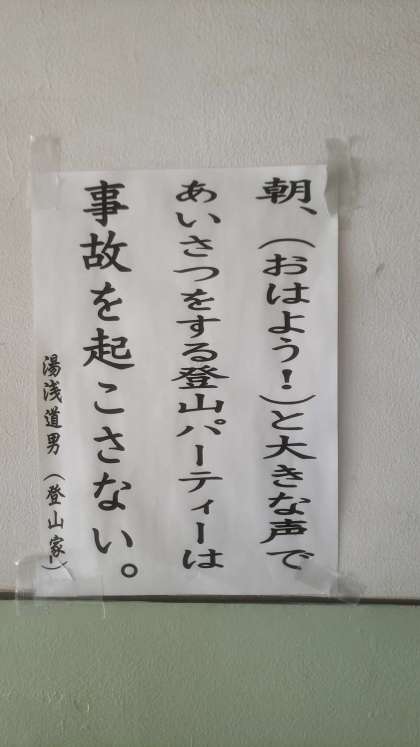 朝、（おはよう！）と大きな声で
あいさつをする登山パーティーは
事故を起こさない。
湯浅道男（登山家）